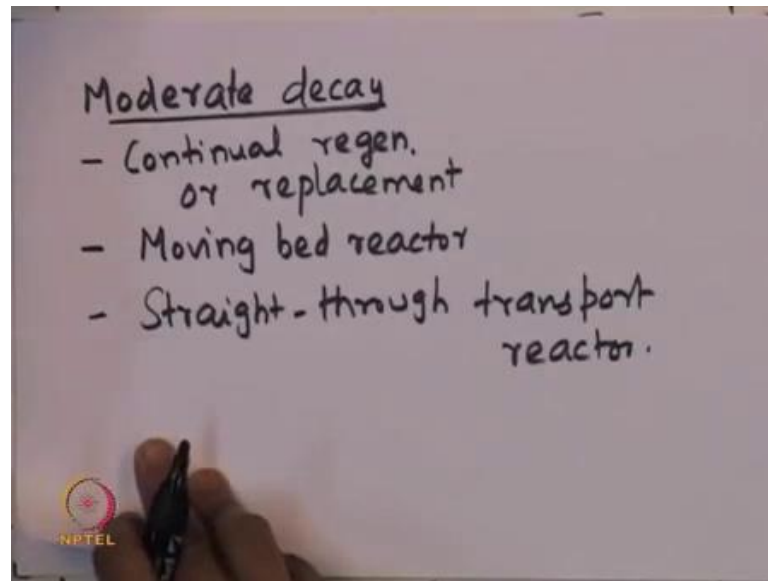 Moderate decay
- Continual regen.
or replacement
- Moving bed reactor
- Straight-through transport
reactor.
NPTEL